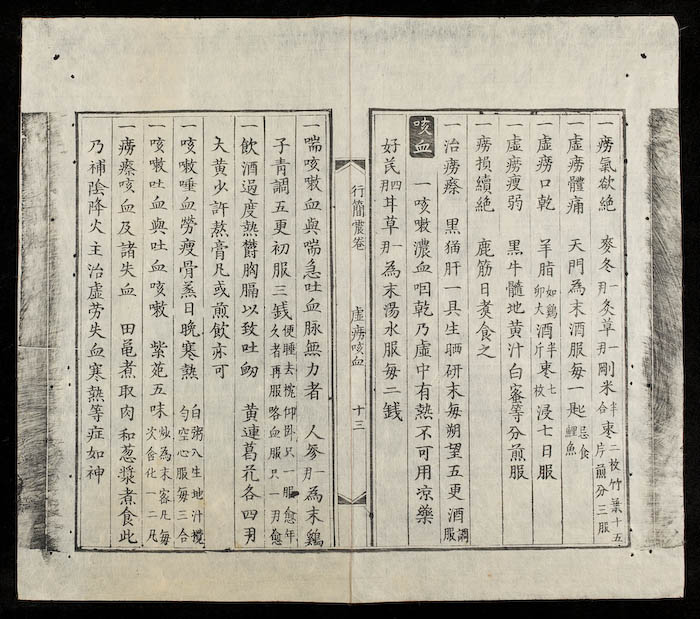 一癆氣欲絶 麥冬一刄炙草一刄剛米半合棗二枚竹葉十五片煎分三服
一虛癆體痛 天門為末酒服每一匙忌食鯉魚
一虛癆口乾 羊脂如鷄卵大酒半斤棗七枚浸七日服
一虛癆瘦弱 黑牛髓地黄汁白蜜等分煎服
一癆損續絶 鹿筋日煑食之
一治癆瘵 黑猫肝一具生晒研末每朔望五更酒調服
咳血 一咳嗽濃血咽乾乃虛中有熱不可用凉藥
好芪四刄甘草一刄為末湯水服每二錢
行簡震卷 虛癆咳血 十三
一喘咳嗽血與喘急吐血脉無力者 人參一刄為末鷄
子青調五更初服三錢便睡去枕仰卧只一服愈年久者再服咯血服只一刄愈
一飲酒過度熱欝胸膈以致吐衂 黄連葛花各四刄
大黄少許熬膏凡或煎飲亦可
一咳嗽唾血勞瘦骨蒸日晚寒熱 白粥入生地汁攪勻空心服每三合
一咳嗽吐血與吐血咳嗽 紫菀五味炒為末密凡每次含化一二凡
一癆瘵咳血及諸失血 田黾煮取肉和葱漿煮食此
乃補陰降火主治虛劳失血寒熱等症如神